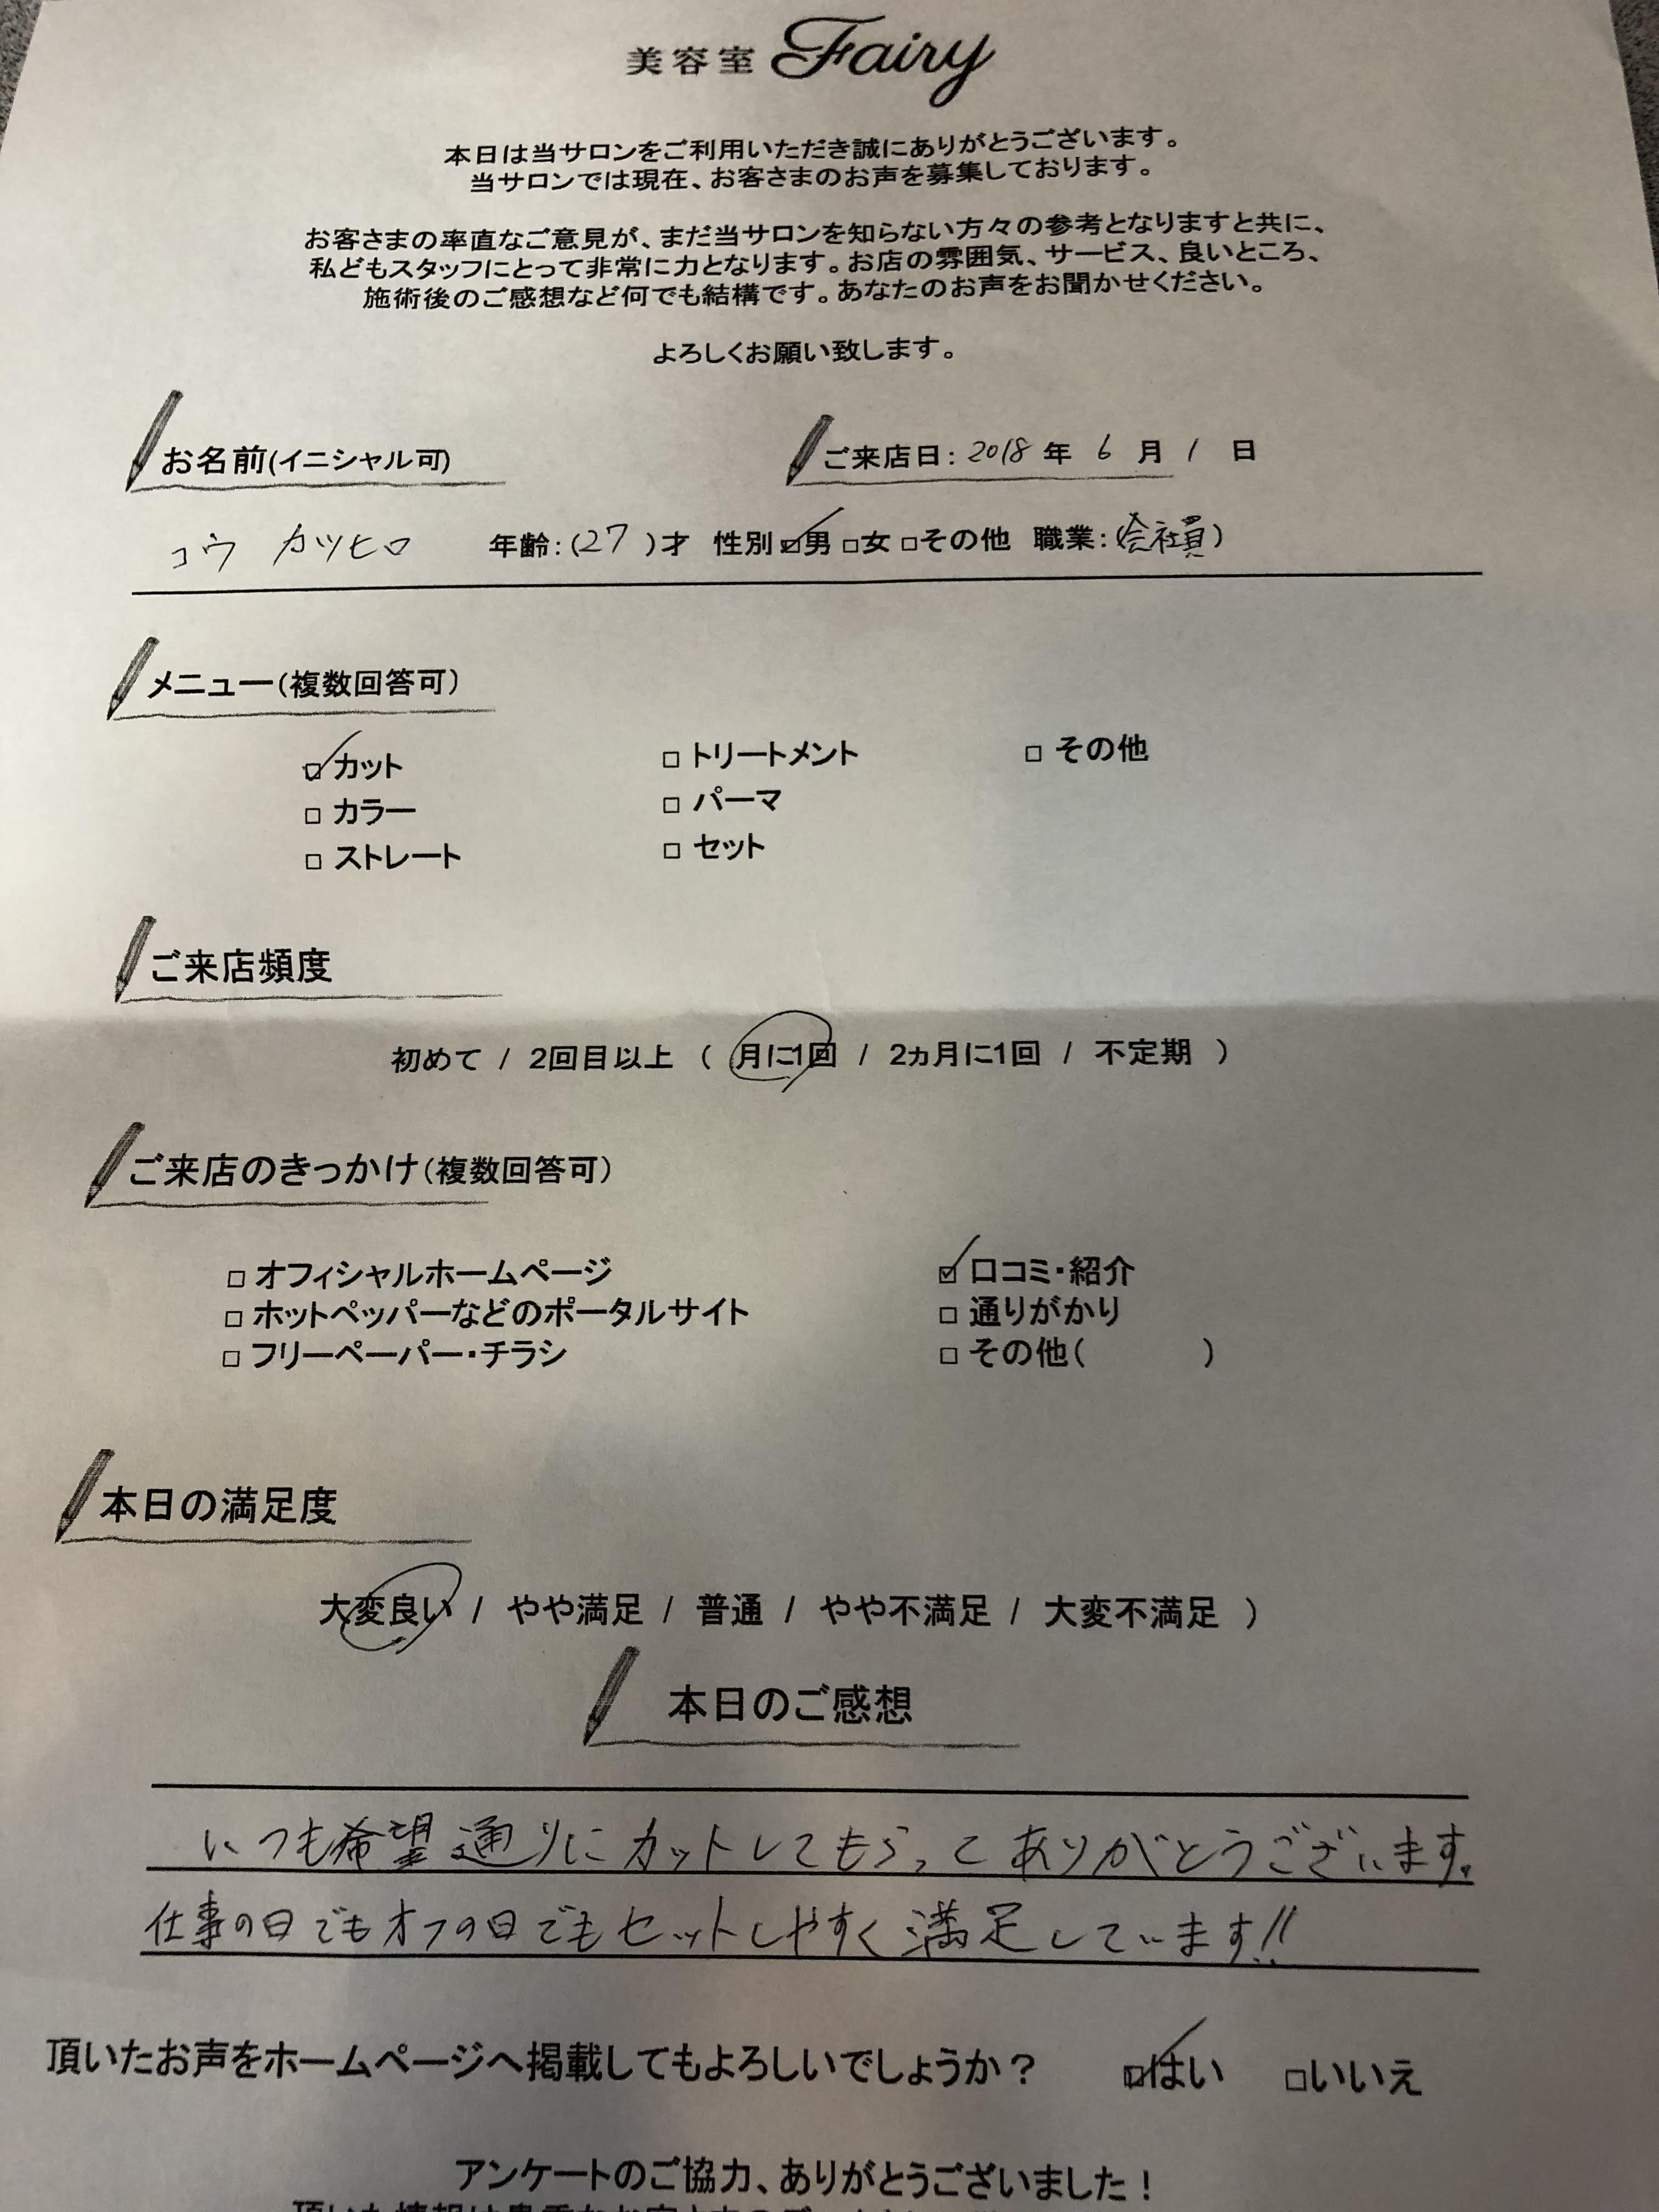 美容室 Fairy
本日は当サロンをご利用いただき誠にありがとうございます。
当サロンでは現在、お客さまのお声を募集しております。
お客さまの率直なご意見が、まだ当サロンを知らない方々の参考となりますと共に、
私どもスタッフにとって非常に力となります。お店の雰囲気、サービス、良いところ、
施術後のご感想など何でも結構です。あなたのお声をお聞かせください。
よろしくお願い致します。
お名前(イニシャル可) ご来店日: 2018 年 6 月 1 日
コウ カツヒロ 年齢:(27 )才 性別 ☑男 □女 □その他 職業:(会社員)
メニュー(複数回答可)
☑ カット □ トリートメント □ その他
□ カラー □ パーマ
□ ストレート □ セット
ご来店頻度
初めて / 2回目以上 ( 月に1回 / 2ヵ月に1回 / 不定期 )
ご来店のきっかけ(複数回答可)
□ オフィシャルホームページ ☑ 口コミ・紹介
□ ホットペッパーなどのポータルサイト □ 通りがかり
□ フリーペーパー・チラシ □ その他( )
本日の満足度
大変良い / やや満足 / 普通 / やや不満足 / 大変不満足 )
本日のご感想
いつも希望通りにカットしてもらってありがとうございます。
仕事の日でもオフの日でもセットしやすく満足しています!!
頂いたお声をホームページへ掲載してもよろしいでしょうか? ☑はい □いいえ
アンケートのご協力、ありがとうございました!